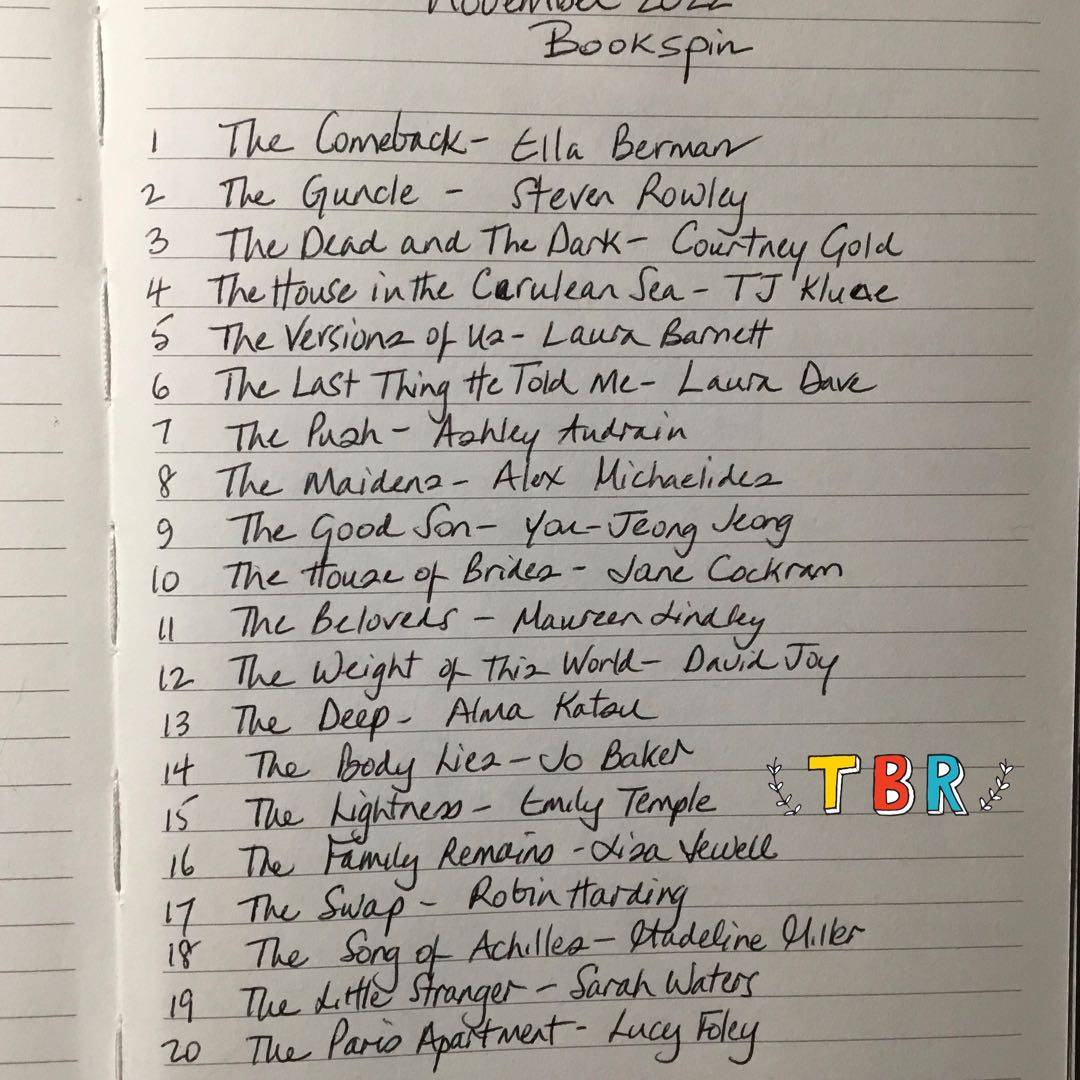 November 2022
Bookspin
1 The Comeback - Ella Berman
2 The Guncle - Steven Rowley
3 The Dead and The Dark - Courtney Gold
4 The House in the Cerulean Sea - TJ Klune
5 The Versions of Us - Laura Barnett
6 The Last Thing He Told Me - Laura Dave
7 The Push - Ashley Audrain
8 The Maidens - Alex Michaelides
9 The Good Son - You-Jeong Jeong
10 The House of Brides - Jane Cockram
11 The Beloveds - Maureen Lindley
12 The Weight of This World - David Joy
13 The Deep - Alma Katsu
14 The Body Lies - Jo Baker
TBR
15 The Lightness - Emily Temple
16 The Family Remains - Lisa Jewell
17 The Swap - Robin Harding
18 The Song of Achilles - Madeline Miller
19 The Little Stranger - Sarah Waters
20 The Paris Apartment - Lucy Foley